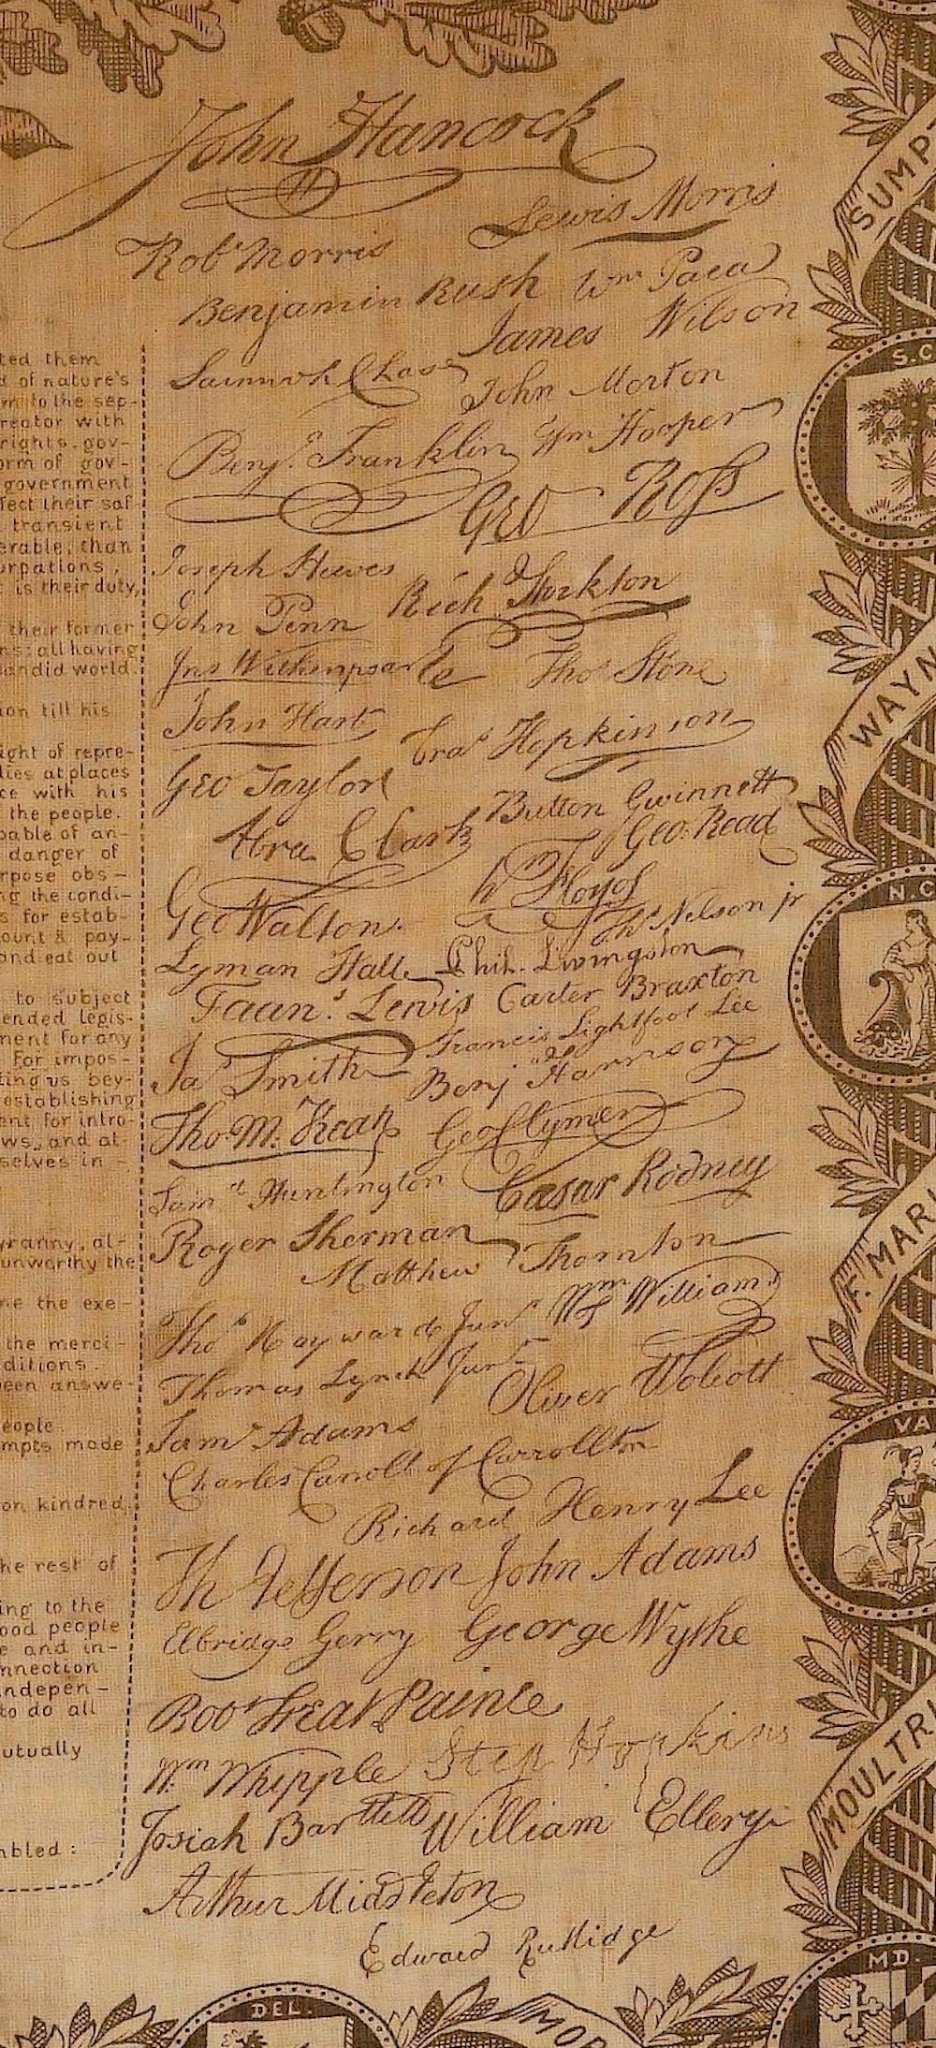 John Hancock
Lewis Morris
Robt Morris
Benjamin Rush Wm Paca
James Wilson
Samuel Chase
John Morton
Benj. Franklin Wm Hooper
GEO Ross
Joseph Hewes
John Penn Rich Stockton
Jno Witherspoon Thos Stone
John Hart Fras Hopkinson
GEO Taylor
Button Gwinnett
Abra Clark Geo. Read
Wm Floyd
Geo Walton. Ths Nelson jr
Lyman Hall Phil. Livingston
Faans. Lewis Carter Braxton
Francis Lightfoot Lee
Jas Smith Benj Harrison
Tho. M. Kean Geo Clymer
Saml Huntington Cæsar Rodney
Roger Sherman
Matthew Thornton
Thos Hayward Junr Wm Williams
Thomas Lynch Junr
Oliver Wolcott
Saml Adams
Charles Carroll of Carrollton
Richard Henry Lee
Th Jefferson John Adams
Elbridge Gerry George Wythe
Robt Treat Paine
Wm Whipple Step Hopkins
Josiah Bartlett William Ellery
Arthur Middleton
Edward Rutlidge
ted them
d of nature's
m to the sep-
reator with
rights. gov-
orm of gov-
government
fect their saf
transient
erable, than
urpations.
is their duty,
their former
ns: all having
andid world.
on till his
ight of repre-
dies at places
ce with his
the people.
pable of an-
danger of
rpose obs-
ng the condi-
s for estab-
ount & pay-
and eat out
to subject
ended legis-
ment for any
For impos-
ting us bey-
establishing
ent for intro-
ws, and al-
selves in-
yranny, al-
unworthy the
me the exe-
the merci-
ditions.
been answe-
eople
mpts made
on kindred.
he rest of
ing to the
ood people
e and in-
nnection
indepen-
to do all
utually
mbled:
SUMP
S.C.
WAYN
N.C.
F. MARI
VA
MOULTRI
MD.
DEL.
MOR